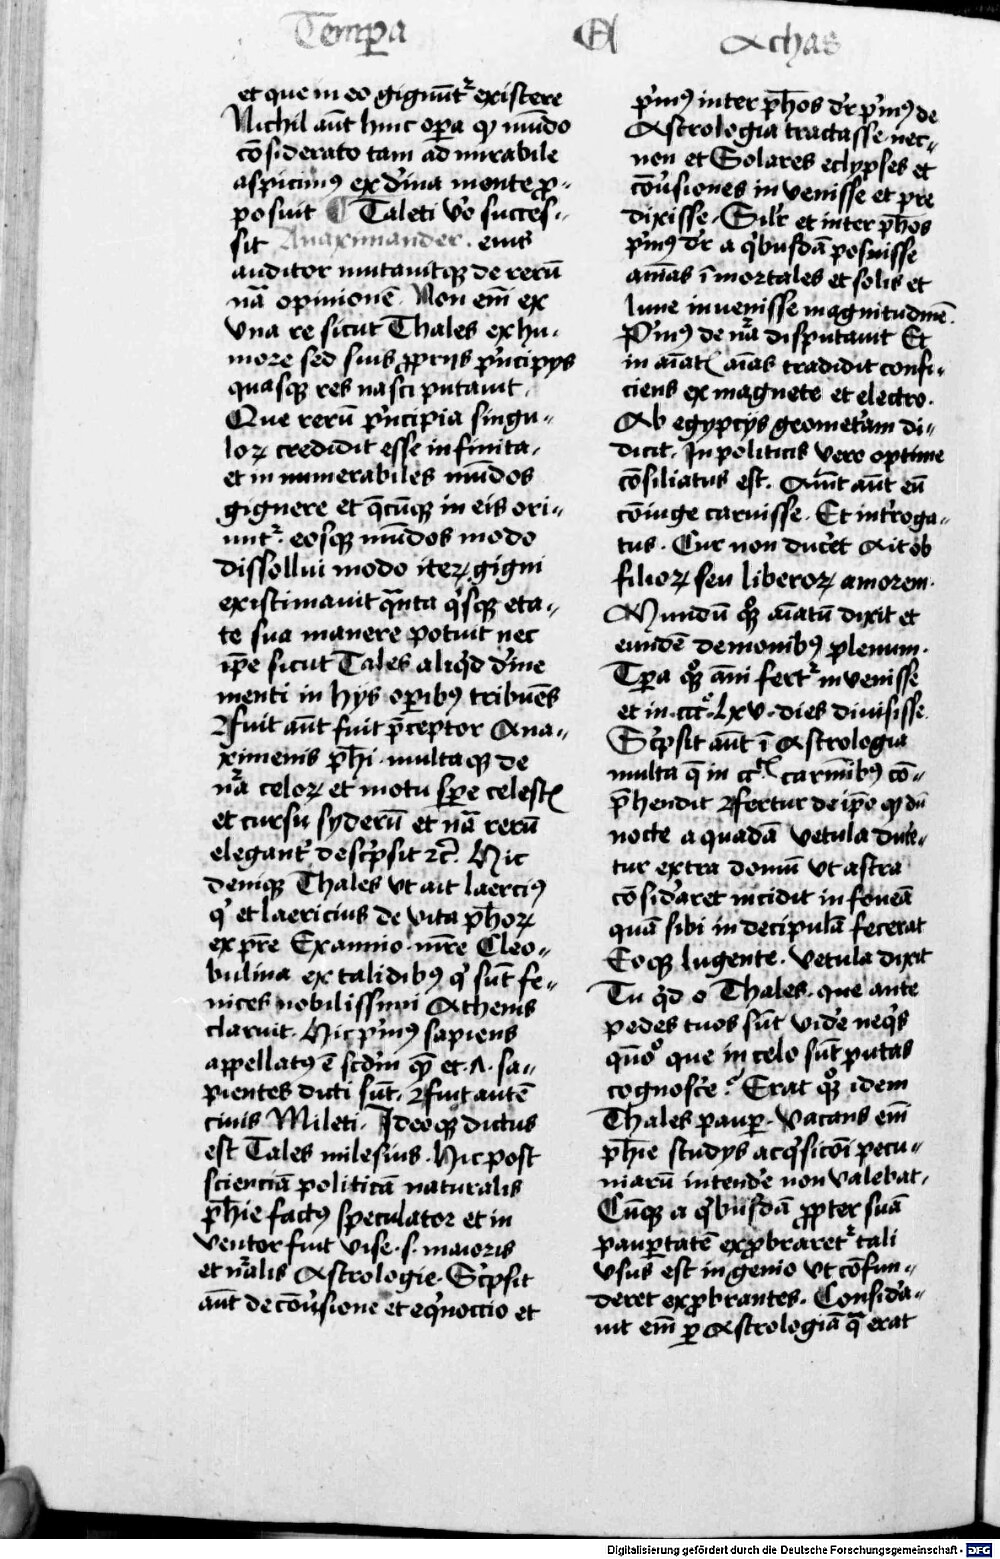 Tempa A Achas
et que in eo gignūtᷣ existere
Nichil aūt huic opa qͥ mūdo
cōsiderato tam admirabile
aspicimꝰ ex diⁿina mente ꝓ-
posuit ¶ Taleti vͦo succes-
sit Anaximander. eius
auditor mutauitqꝫ de rerū
nāᷓ opinionē. Non em̄ ex
vna re sicut Thales ex hu-
more sed suis ꝓprijs pͥncipijs
quasqꝫ res nasci putauit.
Que rerū pͥncipia singu-
loꝝ credidit esse infinita.
et innumerabiles mūdos
gignere et q̄cūqꝫ in eis ori-
untᷣ. eosqꝫ mūdos modo
dissollui modo iteꝝ gigni
existimauit qᷓnta qͥsqꝫ eta-
te sua manere potuit nec
ip̄e sicut Tales aliqͥd diⁿine
menti in hijs opibꝰ tribuēs
fuit aūt preceptor Ana-
ximenis ph̄i. multaqꝫ de
nāᷓ celoꝝ et motu spe celestꝭ
et cursu syderū et nāᷓ rerū
elegantᷣ descͥpsit ⁊c̄. Hic
deniqꝫ Thales vt ait laerciꝰ
qͥ et laericius de vita ph̄oꝝ
ex pr̄e Examio. mr̄e Cleo-
bulina ex talidibꝰ qͥ sūt fe-
nices nobilissimi Athenis
claruit. Hic pͥmꝰ sapiens
appellatꝰ ē scdm̄ quē et .ʌ. sa-
pientes dicti sūt. fuit autē
ciuis Mileti. Ideoqꝫ dictus
est Tales milesius. Hic post
scienciā politicā naturalis
ph̄ie factꝰ speculator et in
ventor fuit vrse .s. maioris
et nᷓalis Astrologie. Scͥpsit
aūt de cōuͥsione et eqͥnoccio et
pͥmꝰ inter ph̄os dr̄ pͥmꝰ de
Astrologia tractasse. nec-
non et Solares eclypses et
cōuͥsiones invenisse et pre
dixisse. Silr̄ et inter ph̄os
pͥmꝰ dr̄ a qͥbusdā posuisse
aīas īmortales et solis et
lune invenisse magnitudinē.
Pͥmꝰ de nāᷓ disputauit Et
inaīatꝭ aīas tradidit confi-
ciens ex magnete et electro.
Ab egypcijs geometͥam di-
dicit. In politicis vero optime
cōsiliatus est. Aiūt aūt eū
cōiuge caruisse. Et intͥroga-
tus. Cur non ducͥet Ait ob
filioꝝ seu liberoꝝ amorem.
Mundū qͦqꝫ aīatū dixit et
eundē demonibꝰ plenum.
Tpa qͦqꝫ anni fertᷣ invenisse
et in .cccͦ. Lxv. dies diuisisse.
Scͥpsit aūt ī Astrologia
multa q̄ in ccͭꝭ carmībꝰ cō-
p̄hendit fertur de ip̄o qͥ dū
nocte a quadā vetula duce-
tur extra domū vt astra
cōsidͥaret incidit in foueā
quā sibi in decipulā fecerat
Eoqꝫ lugente. vetula dixit
Tu qͥd o Thales. que ante
pedes tuos sūt vidͥe neqͥs
qūoͦ que in celo sūt putas
cognoscͥe? Erat qͦqꝫ idem
Thales paup. vacans em̄
ph̄ie studijs acqͥsicōi pecu-
niarū intendͥe non valebat.
Cūqꝫ a qͥbusdā ꝓpter suā
paupͣtatē exꝓbraretᷣ tali
vsus est ingenio vt cōfun-
deret exꝓbrantes. Considͥa-
uit em̄ ꝑ Astrologiā qᷓ erat
Digitalisierung gefördert durch die Deutsche Forschungsgemeinschaft - DFG